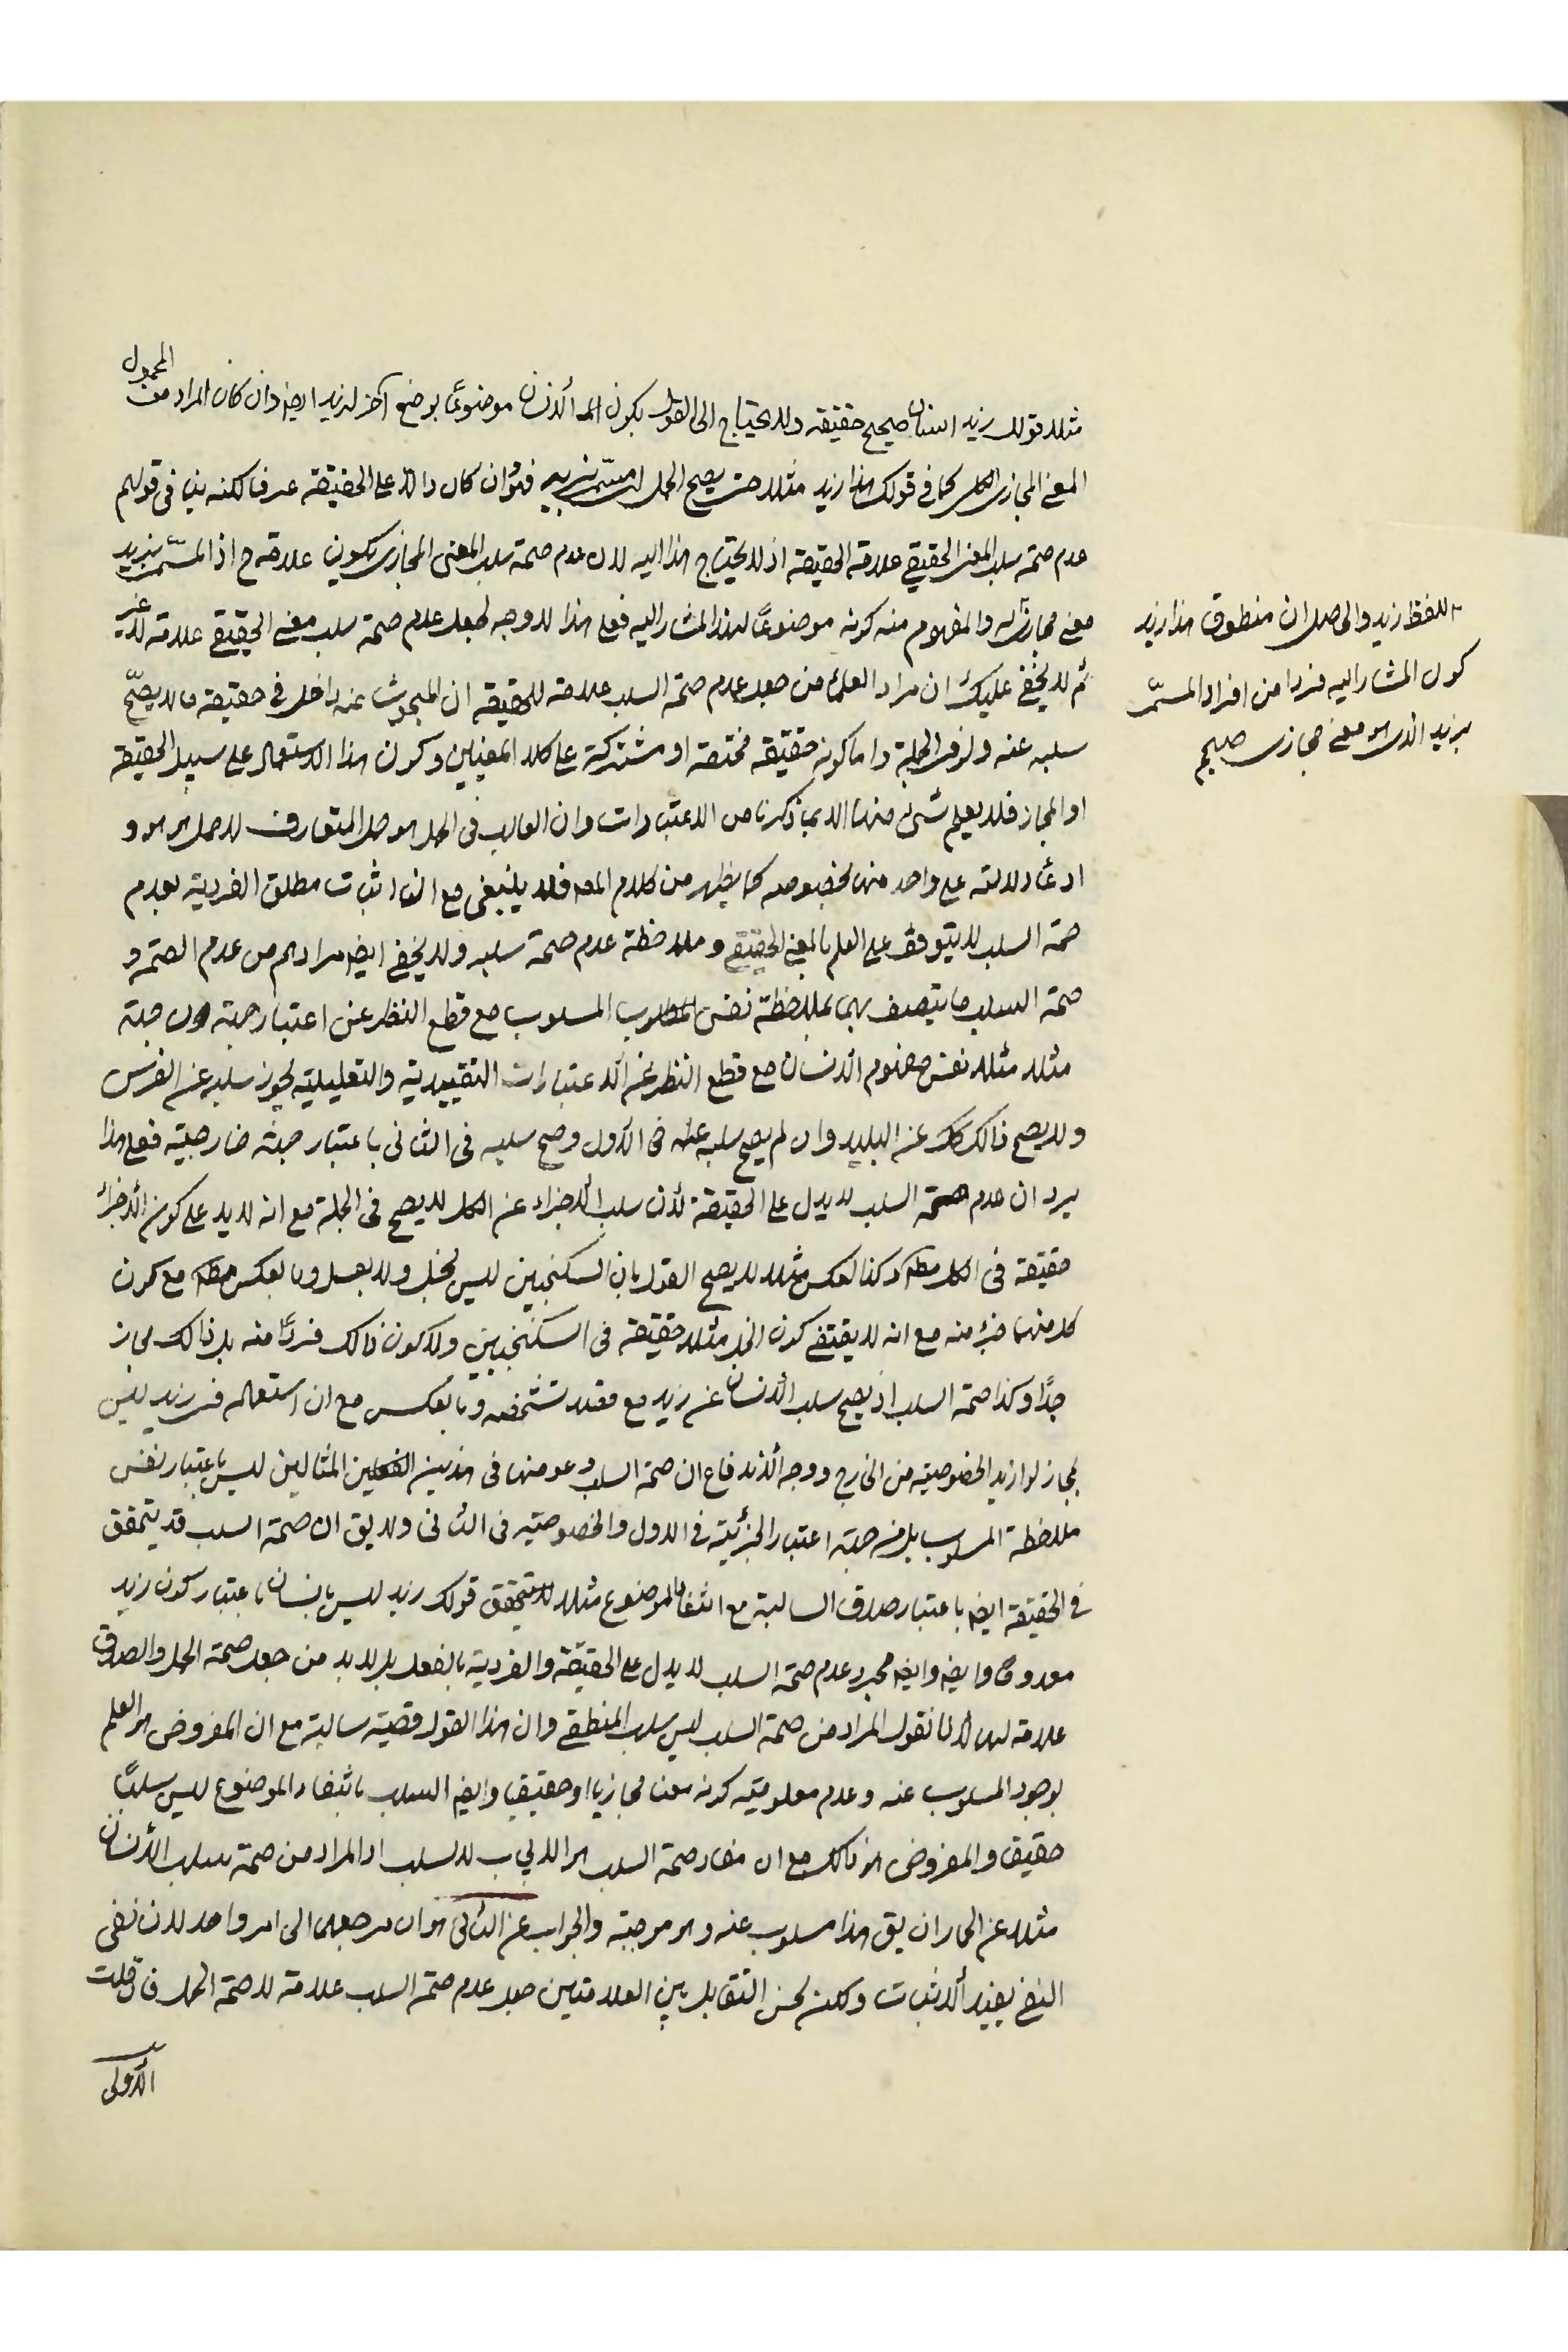 المحمول
مثلا قولك زيد انسان صحيح حقيقة ولا يحتاج الى القول بكون الانسان موضوعًا بوضع آخر لزيد ايضا وان كان المراد من
المعنى المجازى الكلى كما فى قولك هذا زيد مثلا حتى يصح الحمل اى مسمّى بزيد فهو وان كان دالا على الحقيقة عرفا لكنه ينا فى قولهم
عدم صحة سلب المعنى الحقيقى علامة الحقيقة اذ لا يحتاج هذا اليه لان عدم صحة سلب المعنى المجازى يكون علامة ح اذ المسمّى بزيد
معنى مجازى له والمفهوم منه كونه موضوعًا لهذا المشار اليه فعلى هذا لا وجه لجعل عدم صحة سلب معنى الحقيقى علامة لا غير
ثم لا يخفى عليك ان مراد العلماء من جعل عدم صحة السلب علامة للحقيقة ان المبحوث عنه داخل فى حقيقة ما لا يصحّ
سلبه عنه ولو فى الجملة واما كونه حقيقة مختصة او مشتركة على كلا المعنيين وكون هذا الاستعمال على سبيل الحقيقة
او المجاز فلا يعلم شئ منها الا بما ذكرنا من الاعتبارات وان الغالب فى الحمل هو حمل المتعارف لا حمل هو هو و
ادعاء دلالته على واحد منها بخصوصه كما يظهر من كلام المص فلا ينبغى مع ان اثبات مطلق الفردية بعدم
صحة السلب لا يتوقف على العلم بالمعنى الحقيقى وملاحظة عدم صحة سلبه ولا يخفى ايض مرادهم من عدم الصحة و
صحة السلب ما يتصف بهما بملاحظة نفس المسلوب مع قطع النظر عن اعتبار جهة دون جهة
مثلا مثلا نفس مفهوم الانسان مع قطع النظر عن الاعتبارات التقييدية والتعليلية يجوز سلبه عن الفرس
ولا يصح ذالك عن البليد وان لم يصح سلبه عنه فى الاول وصح سلبه فى الثانى باعتبار جهة خارجية فعلى هذا
يرد ان عدم صحة السلب لا يدل على الحقيقة لأن سلب الاجزاء عن الكل لا يصح فى الجملة مع انه لا يدل على كون الاجزاء
حقيقة فى الكل وكذا العكس مثلا لا يصح القول بان السكنجبين ليس بخل ولا بعسل وبالعكس مع كون
كل منهما جزء منه مع انه لا يقتضى كون الخل مثلا حقيقة فى السكنجبين ولا كون ذالك فردًا منه بل ذالك مجاز
جدًا وكذا صحة السلب اذ يصح سلب الانسان عن زيد مع تشخصه وبالعكس مع ان استعماله فى زيد ليس
بمجاز لو اريد الخصوصية من الخارج ووجه الاندفاع ان صحة السلب وعدمها فى هذين المثالين ليس باعتبار نفس
ملاحظة المسلوب بل من جهة اعتبار الجزئية فى الاول والخصوصية فى الثانى ولا يق ان صحة السلب قد يتحقق
فى الحقيقة ايض باعتبار صدق السالبة مع انتفاء الموضوع مثلا يتحقق قولك زيد ليس بانسان باعتبار كون زيد
معدومًا وايض مجرد عدم صحة السلب لا يدل على الحقيقة والفردية بالفعل بل لا بد من جعل صحة الحمل والصدق
علامة لها لانا نقول المراد من صحة السلب ليس سلب المنطقى وان هذا القول قضية سالبة مع ان المفروض هو العلم
بوجود المسلوب عنه وعدم معلومية كونه معنا مجازيا او حقيقيا وايض السلب بانتفاء الموضوع ليس سلبًا
حقيقا والمفروض هو ذالك مع ان مفاد صحة السلب هو الايجاب لا السلب اذ المراد من صحة سلب الانسان
مثلا عن الحمار ان يق هذا مسلوب عنه وهو موجبة والجواب عن الثانى هو ان مرجعهما الى امر واحد لان نفى
النفى يفيد الاثبات ولكن لحسن التقابل بين العلامتين جعل عدم صحة السلب علامة لا صحة الحمل فان قلت
الأولى
للفظ زيد والحاصل ان منطوق هذا زيد
كون المشار اليه فردا من افراد المسمّى
بزيد الذى هو معنى مجازى صحيح